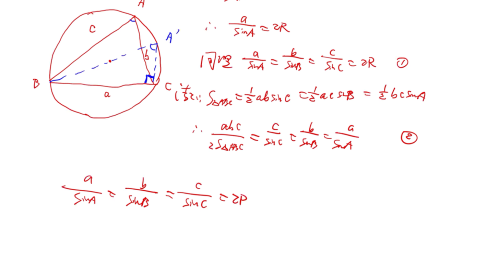 A
c
A'
b
B
C
a
∴ a/sinA = 2R
同理 a/sinA = b/sinB = c/sinC = 2R ①
S△ABC = 1/2 ab sinC = 1/2 ac sinB = 1/2 bc sinA
∴ abc/2S△ABC = c/sinC = b/sinB = a/sinA ②
a/sinA = b/sinB = c/sinC = 2R